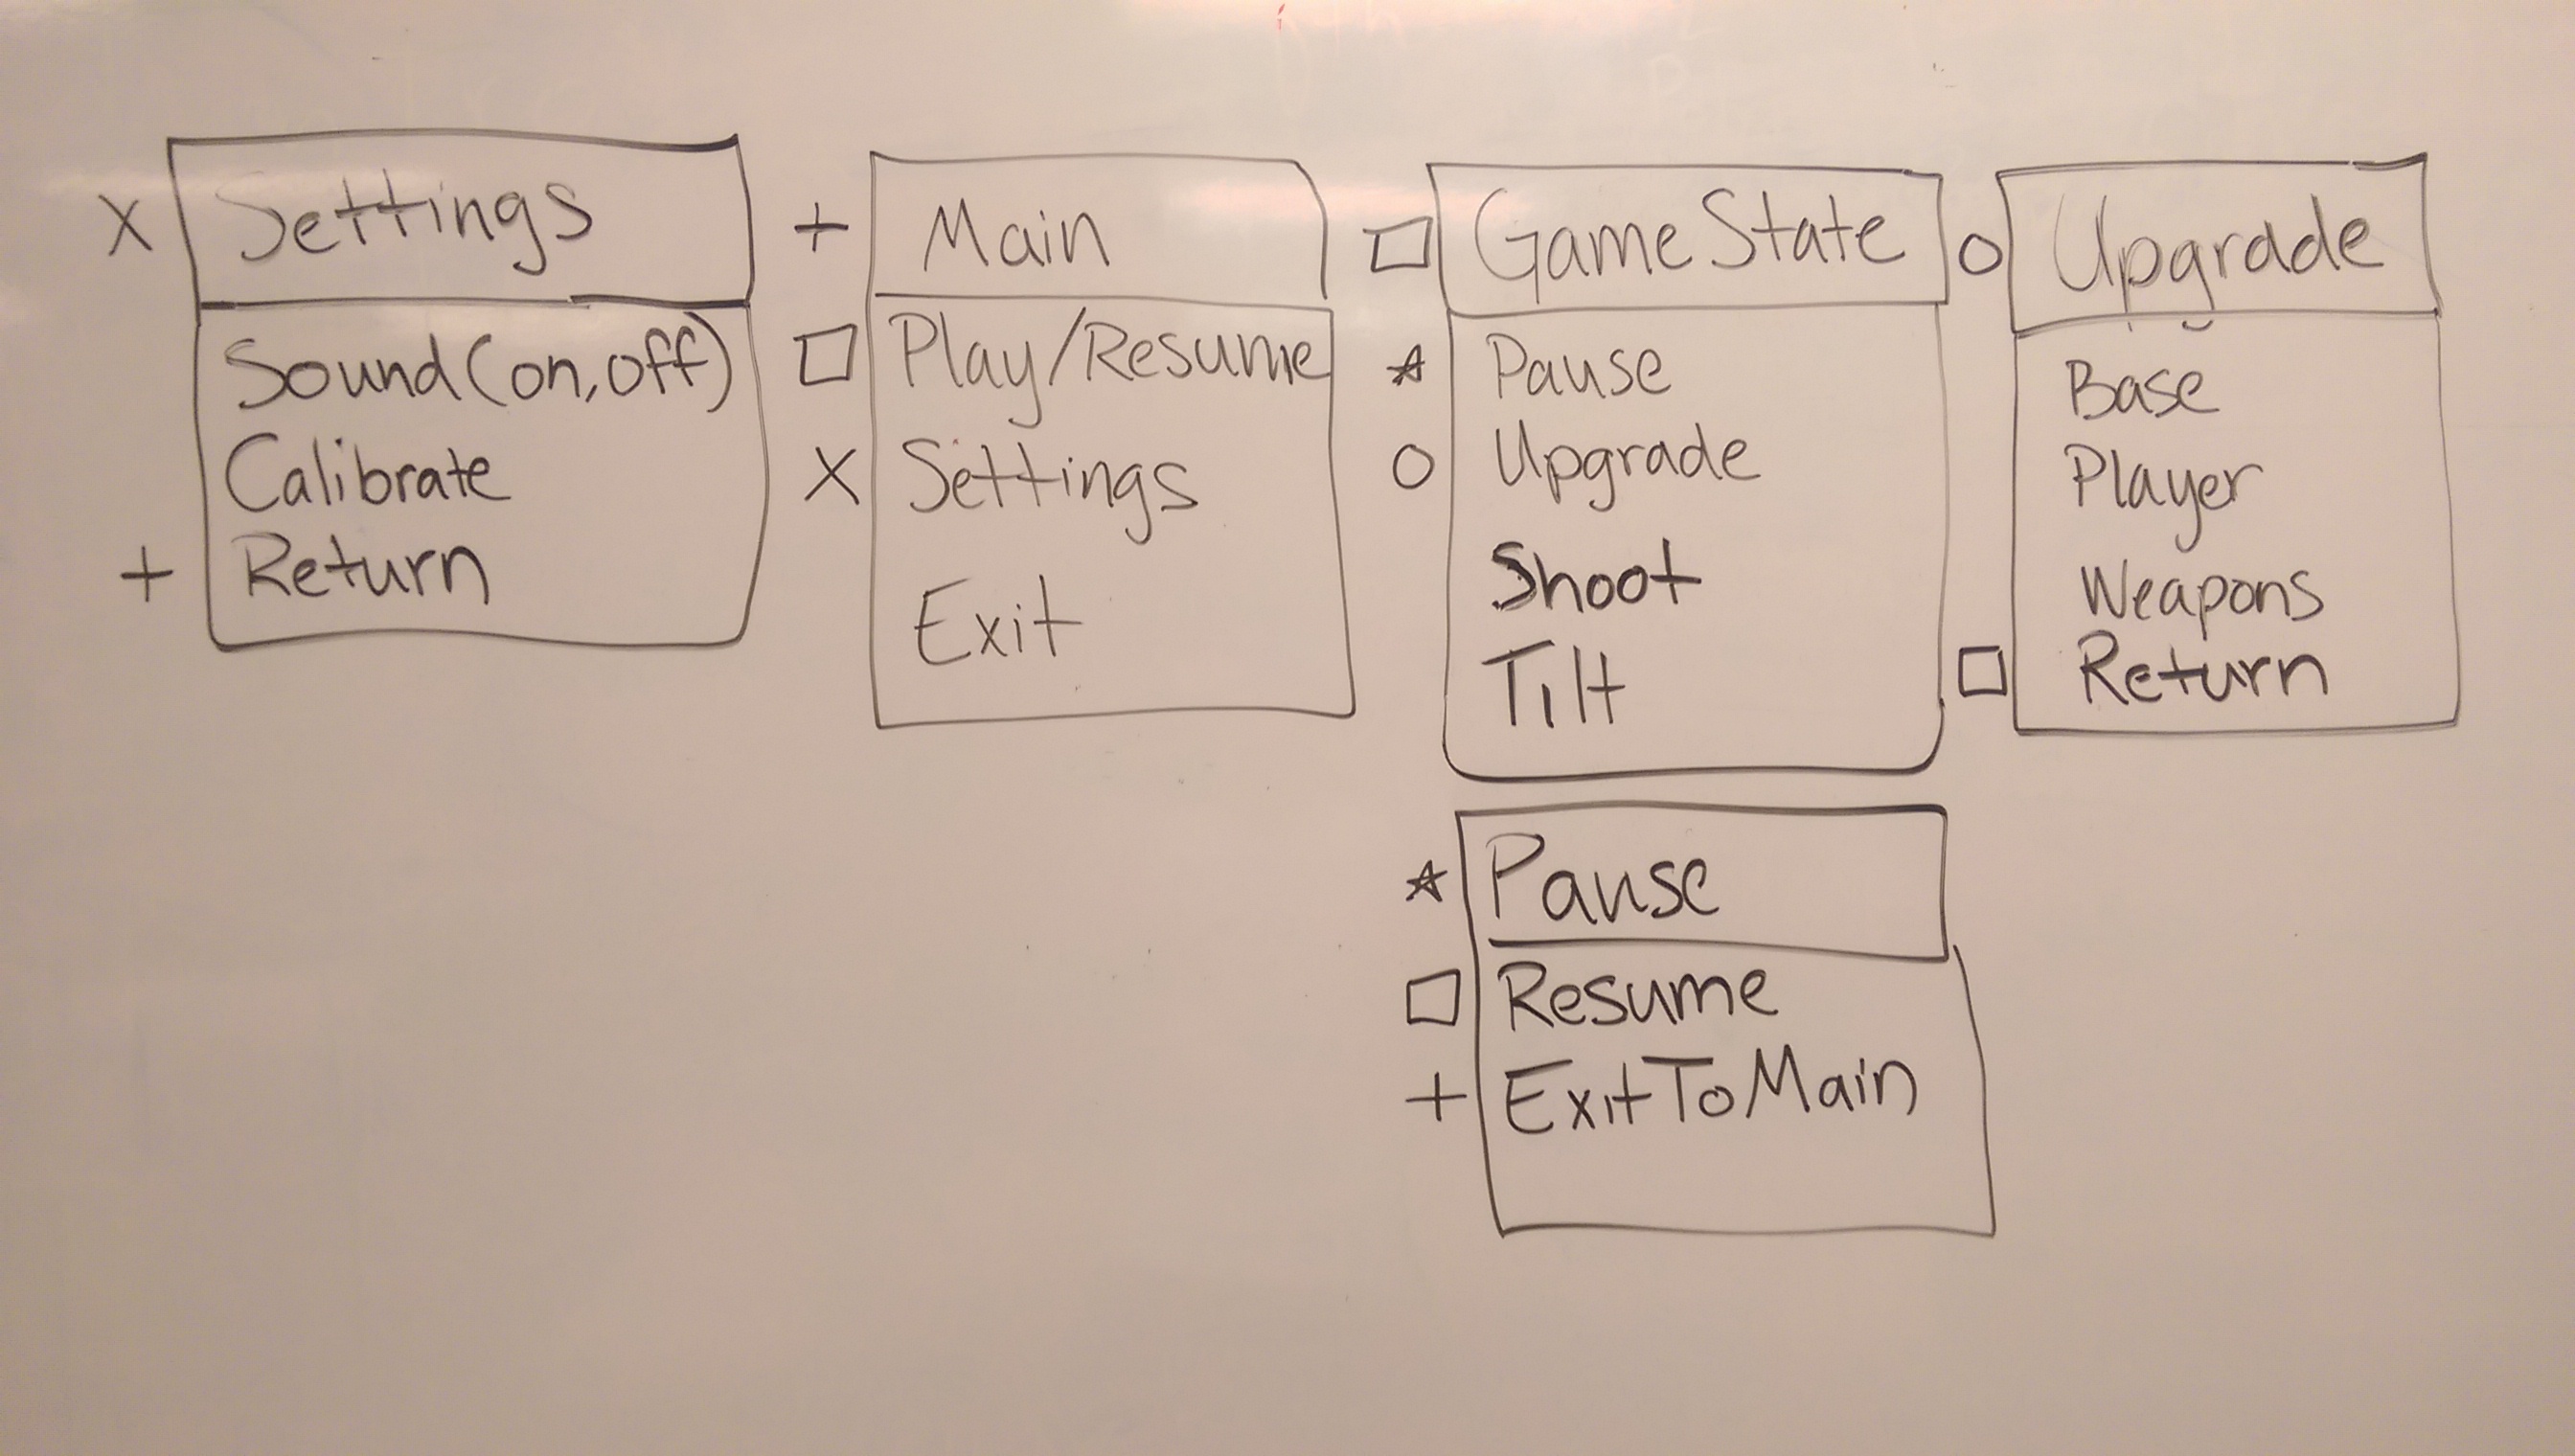 x Settings
Sound(on,off)
Calibrate
+ Return
+ Main
□ Play/Resume
x Settings
Exit
□ GameState
☆ Pause
○ Upgrade
Shoot
Tilt
○ Upgrade
Base
Player
Weapons
□ Return
☆ Pause
□ Resume
+ ExitToMain